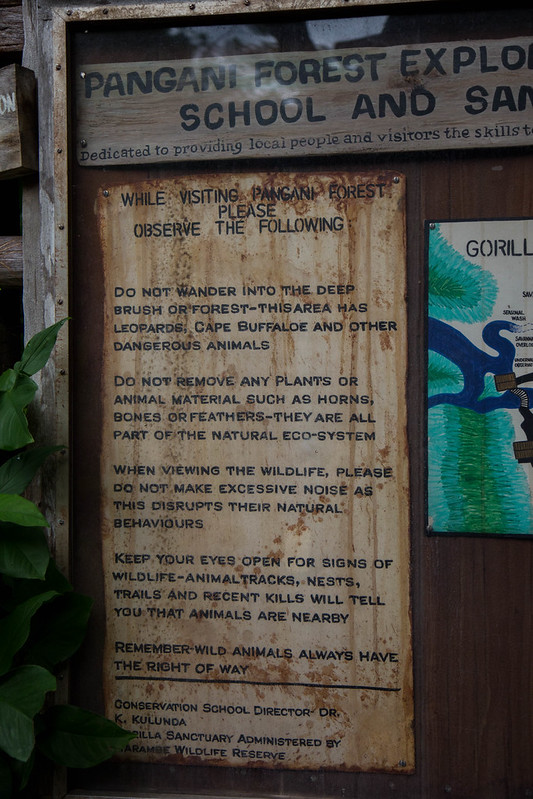 PANGANI FOREST EXPLO
SCHOOL AND SAN
Dedicated to providing local people and visitors the skills to
ON
WHILE VISITING PANGANI FOREST
PLEASE
OBSERVE THE FOLLOWING
DO NOT WANDER INTO THE DEEP
BRUSH OR FOREST-THIS AREA HAS
LEOPARDS, CAPE BUFFALOE AND OTHER
DANGEROUS ANIMALS
DO NOT REMOVE ANY PLANTS OR
ANIMAL MATERIAL SUCH AS HORNS,
BONES OR FEATHERS-THEY ARE ALL
PART OF THE NATURAL ECO-SYSTEM
WHEN VIEWING THE WILDLIFE, PLEASE
DO NOT MAKE EXCESSIVE NOISE AS
THIS DISRUPTS THEIR NATURAL
BEHAVIOURS
KEEP YOUR EYES OPEN FOR SIGNS OF
WILDLIFE-ANIMAL TRACKS, NESTS,
TRAILS AND RECENT KILLS WILL TELL
YOU THAT ANIMALS ARE NEARBY
REMEMBER-WILD ANIMALS ALWAYS HAVE
THE RIGHT OF WAY
CONSERVATION SCHOOL DIRECTOR- DR.
K. KULUNDA
RILLA SANCTUARY ADMINISTERED BY
ARAMBE WILDLIFE RESERVE
GORILL
SEASONAL
WASH